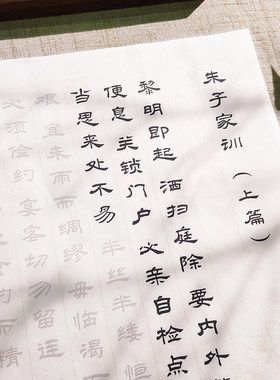 朱子家训（上篇）
黎明即起 洒扫庭除 要内外
便息 关锁门户 必亲自检点
当思来处不易 半丝半缕 恒
艰 宜未雨而绸缪 毋临渴
必须俭约 宴客切勿留连
而精